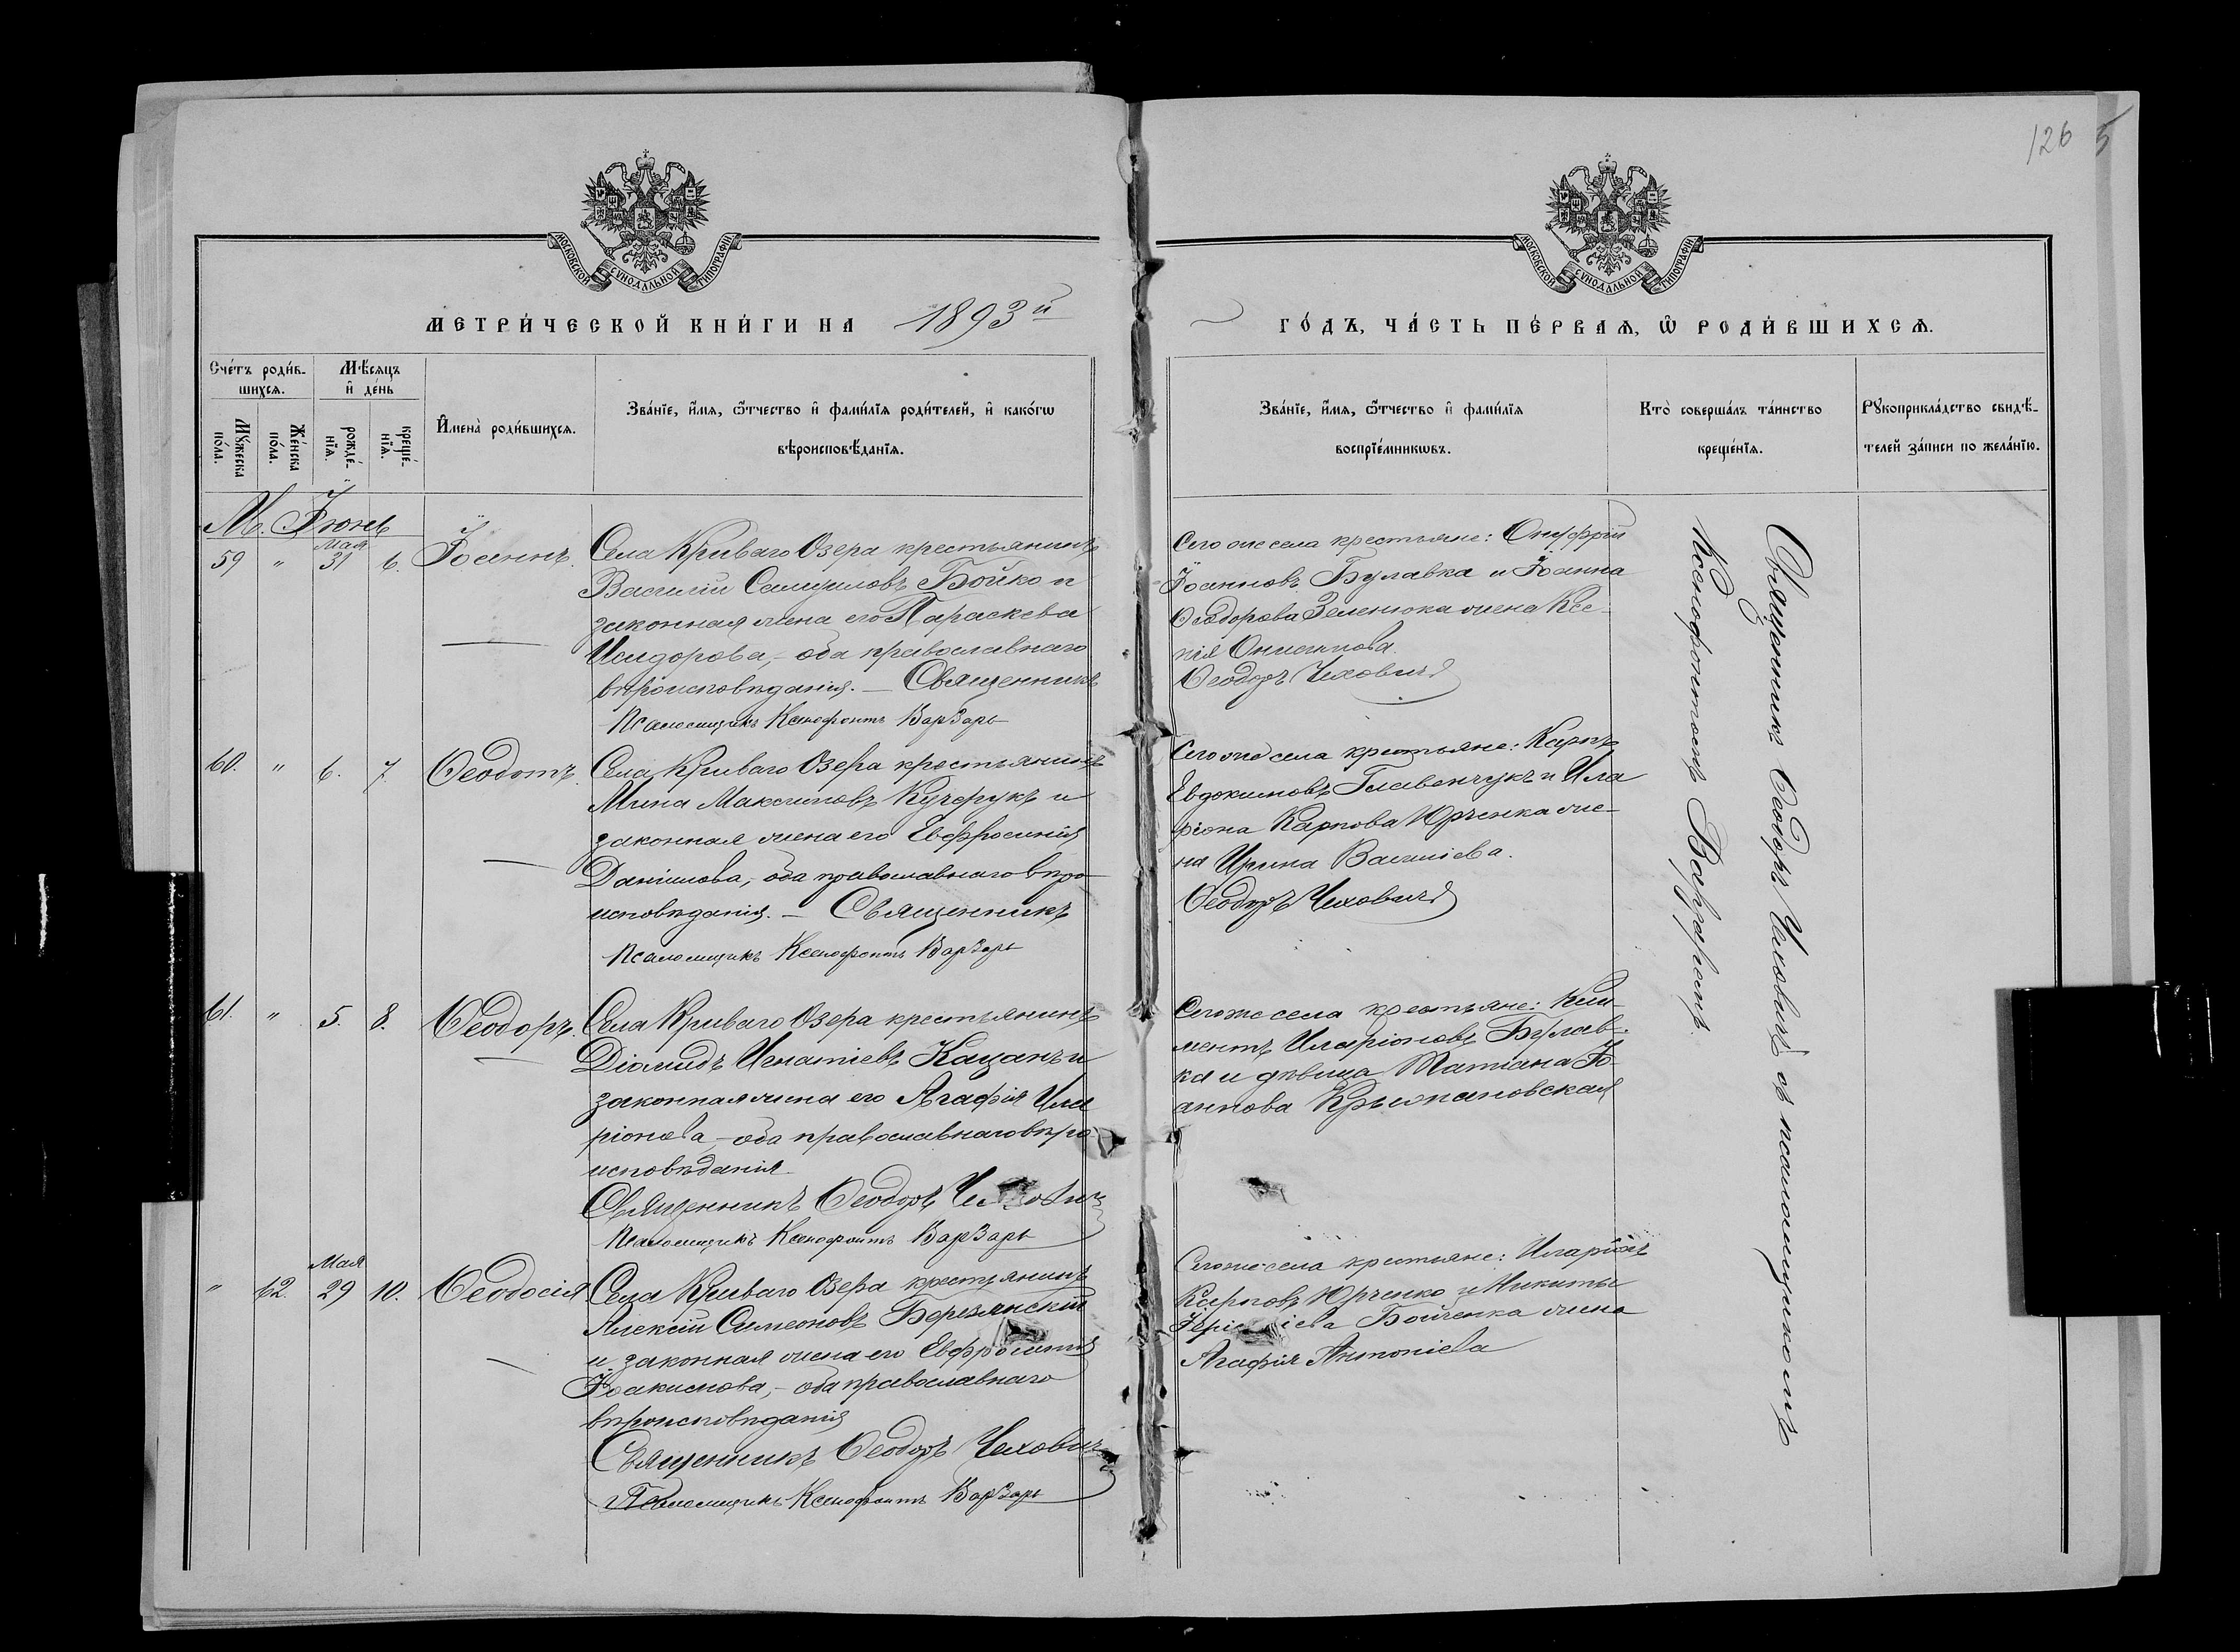 126
5
МОСКОВСКОЙ СѴНОДАЛЬНОЙ ТИПОГРАФІИ
МОСКОВСКОЙ СѴНОДАЛЬНОЙ ТИПОГРАФІИ
МЕТРИ́ЧЕСКОЙ КНИ́ГИ НА 1893й
ГО́ДЪ, ЧА́СТЬ ПЕ́РВАѦ, Ѡ҆ РОДИ́ВШИХСѦ.
Сче́тъ роди́в-
шихсѧ.
Мꙋ́жеска по́ла.
Же́нска по́ла.
Мѣ́сѧцъ
и҆ де́нь
рожде́-
нїѧ.
креще́-
нїѧ.
И҆мена̀ роди́вшихсѧ.
Зва́нїе, и҆́мѧ, ѻ҆́тчество и҆ фамі́лїѧ роди́телей, и҆ како́гѡ
вѣроисповѣ́данїѧ.
Зва́нїе, и҆́мѧ, ѻ҆́тчество и҆ фамі́лїѧ
воспрїе́мникѡвъ.
Кто̀ соверша́лъ та́инство
креще́нїѧ.
Рꙋкоприкла́дство свидѣ́-
телей за́писи по жела́нїю.
М. Іюнь
59 " Мая 31 6. Іоаннъ.
Села Криваго Озера крестьянинъ
Василій Самуиловъ Бойко и
законная жена его Параскева
Исидорова, – оба православнаго
вѣроисповѣданія. – Священникъ
Псаломщикъ Ксенофонтъ Варзарь
Сего же села крестьяне: Онуфрій
Іоанновъ Булавка и Іоанна
Ѳеодорова Зеленюка жена Ксе-
нія
Ѳеодоръ Чеховичъ
60. " 6. 7. Ѳеодотъ.
Села Криваго Озера крестьянинъ
Мина Максимовъ Кучерукъ и
законная жена его Евфросинія
Даніилова, оба православнаго вѣро
исповѣданія. – Священникъ
Псаломщикъ Ксенофонтъ Варзарь
Сего же села крестьяне: Карпъ
Евдокимовъ Главенчукъ и Ила
ріона Карпова Юрченка же-
на Ирина Василіева.
Ѳеодоръ Чеховичъ
61. " 5. 8. Ѳеодоръ.
Села Криваго Озера крестьянинъ
Діомидъ Игнатіевъ Кацанъ и
законная жена его Агафія Ила
ріонова – оба православнаго вѣро-
исповѣданія
Священникъ Ѳеодоръ Чеховичъ
Псаломщикъ Ксенофонтъ Варзарь
Сего же села крестьяне: Кли-
ментъ Иларіоновъ Булав-
ка и дѣвица Татіана Іо-
аннова Крыжановская
" 62. Мая 29 10. Ѳеодосія
Села Криваго Озера крестьянинъ
Алексій Симеоновъ Березянскій
и законная жена его Евфросинія
Іоакимова, – оба православнаго
вѣроисповѣданія
Священникъ Ѳеодоръ Чеховичъ
Псаломщикъ Ксенофонтъ Варзарь
Сего же села крестьяне: Иларіонъ
Карповъ Юрченко и Никиты
Бойченка жена
Агафія Антоніева
Священникъ Ѳеодоръ Чеховичъ съ псаломщикомъ
Ксенофонтомъ Варзаремъ.